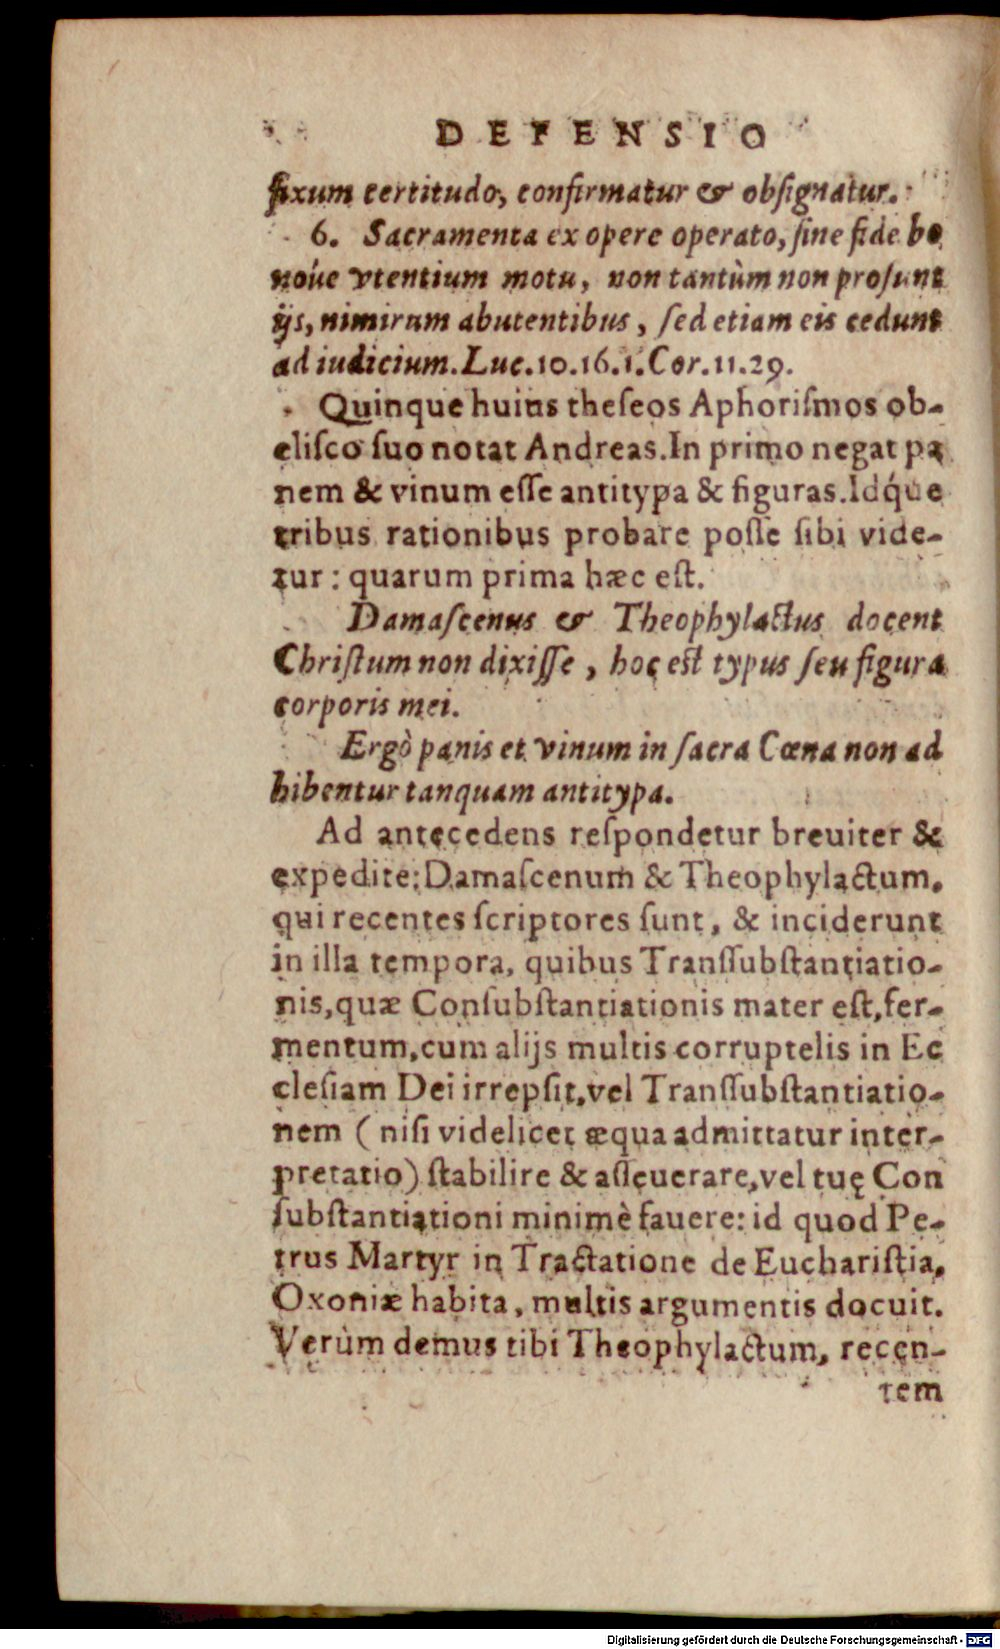 DEFENSIO
fixum certitudo, confirmatur & obſignatur.
6. Sacramenta ex opere operato, ſine fide bo
noúe vtentium motu, non tantùm non proſunt
ijs, nimirum abutentibus, ſed etiam eis cedunt
ad iudicium. Luc. 10. 16. 1. Cor. 11. 29.
Quinque huius theſeos Aphoriſmos ob-
eliſco ſuo notat Andreas. In primo negat pa
nem & vinum eſſe antitypa & figuras. Idq́ue
tribus rationibus probare poſſe ſibi vide-
tur: quarum prima hæc eſt.
Damaſcenus & Theophylactus docent
Chriſtum non dixiſſe, hoc eſt typus ſeu figura
corporis mei.
Ergò panis et vinum in ſacra Cœna non ad
hibentur tanquam antitypa.
Ad antecedens reſpondetur breuiter &
expedite: Damaſcenum & Theophylactum,
qui recentes ſcriptores ſunt, & inciderunt
in illa tempora, quibus Tranſſubſtantiatio-
nis, quæ Conſubſtantiationis mater eſt, fer-
mentum, cum alijs multis corruptelis in Ec
cleſiam Dei irrepſit, vel Tranſſubſtantiatio-
nem (niſi videlicet æqua admittatur inter-
pretatio) ſtabilire & aſſeuerare, vel tuę Con
ſubſtantiationi minimè fauere: id quod Pe-
trus Martyr in Tractatione de Euchariſtia,
Oxoniæ habita, multis argumentis docuit.
Verùm demus tibi Theophylactum, recen-
tem
Digitalisierung gefördert durch die Deutsche Forschungsgemeinschaft - DFG